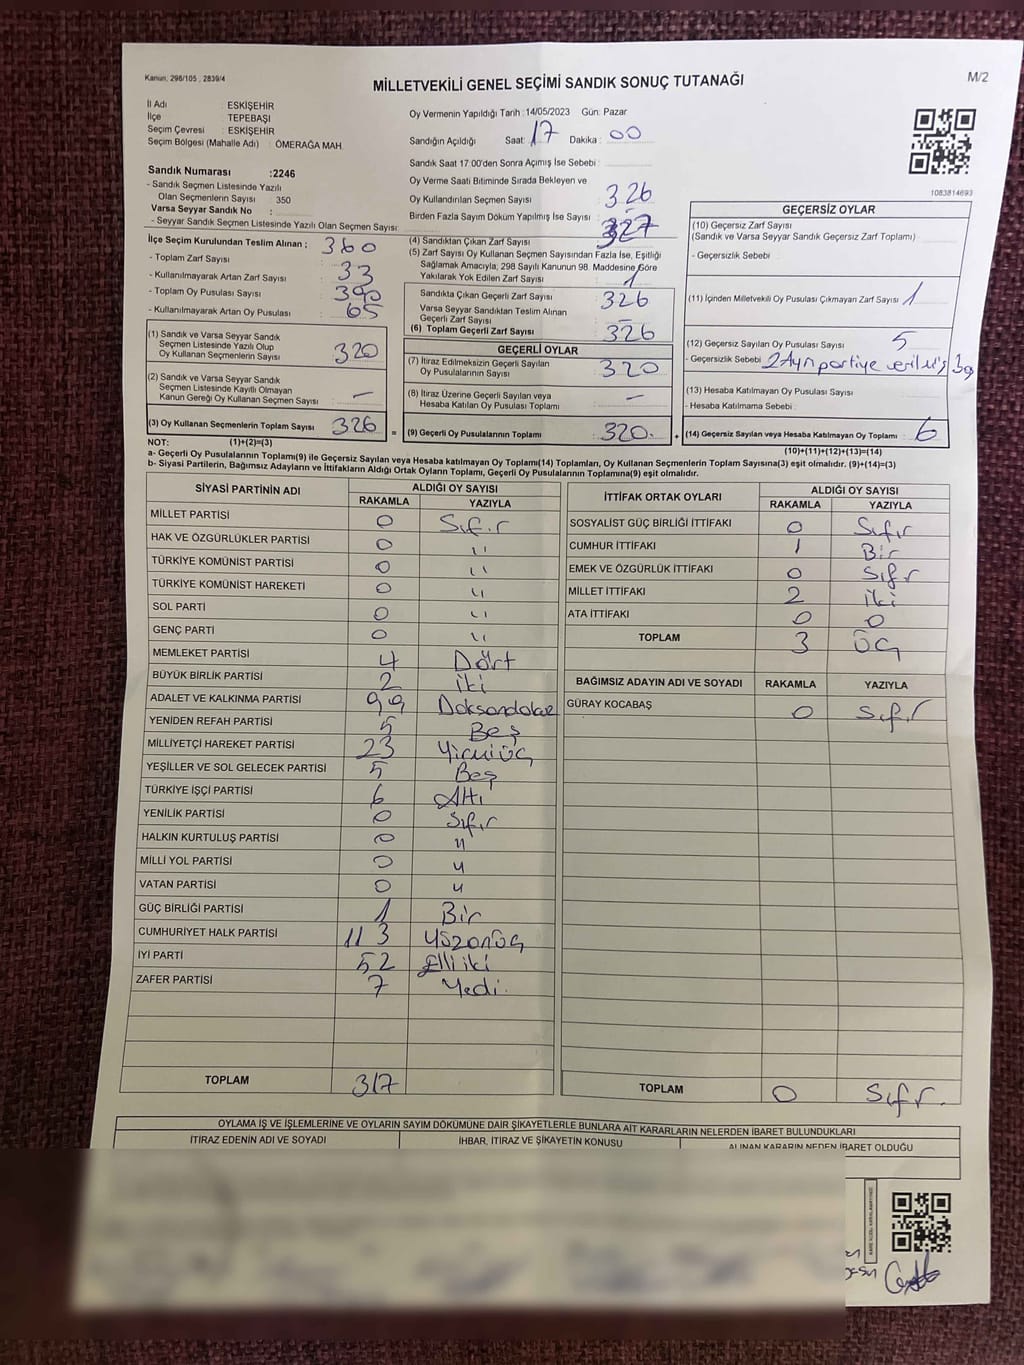 Kanun: 298/105 , 2839/4
MİLLETVEKİLİ GENEL SEÇİMİ SANDIK SONUÇ TUTANAĞI
M/2
İl Adı : ESKİŞEHİR
İlçe : TEPEBAŞI
Seçim Çevresi : ESKİŞEHİR
Seçim Bölgesi (Mahalle Adı) : ÖMERAĞA MAH.
Sandık Numarası :2246
- Sandık Seçmen Listesinde Yazılı
Olan Seçmenlerin Sayısı : 350
Varsa Seyyar Sandık No :
- Seyyar Sandık Seçmen Listesinde Yazılı Olan Seçmen Sayısı
Oy Vermenin Yapıldığı Tarih :14/05/2023 Gün: Pazar
Sandığın Açıldığı Saat: 17 Dakika : 00
Sandık Saat 17:00'den Sonra Açımış İse Sebebi :
Oy Verme Saati Bitiminde Sırada Bekleyen ve
Oy Kullandırılan Seçmen Sayısı : 326
Birden Fazla Sayım Döküm Yapılmış İse Sayısı : -
1083814693
İlçe Seçim Kurulundan Teslim Alınan : 360
- Toplam Zarf Sayısı
- Kullanılmayarak Artan Zarf Sayısı : 33
- Toplam Oy Pusulası Sayısı : 390
- Kullanılmayarak Artan Oy Pusulası : 65
(1) Sandık ve Varsa Seyyar Sandık
Seçmen Listesinde Yazılı Olup
Oy Kullanan Seçmenlerin Sayısı : 320
(2) Sandık ve Varsa Seyyar Sandık
Seçmen Listesinde Kayıtlı Olmayan
Kanun Gereği Oy Kullanan Seçmen Sayısı : -
(3) Oy Kullanan Seçmenlerin Toplam Sayısı : 326
(4) Sandıktan Çıkan Zarf Sayısı : 327
(5) Zarf Sayısı Oy Kullanan Seçmen Sayısından Fazla İse, Eşitliği
Sağlamak Amacıyla, 298 Sayılı Kanunun 98. Maddesine Göre
Yakılarak Yok Edilen Zarf Sayısı : 1
Sandıkta Çıkan Geçerli Zarf Sayısı : 326
Varsa Seyyar Sandıktan Teslim Alınan
Geçerli Zarf Sayısı : -
(6) Toplam Geçerli Zarf Sayısı : 326
GEÇERLİ OYLAR
(7) İtiraz Edilmeksizin Geçerli Sayılan
Oy Pusulalarının Sayısı : 320
(8) İtiraz Üzerine Geçerli Sayılan veya
Hesaba Katılan Oy Pusulası Toplamı : -
= (9) Geçerli Oy Pusulalarının Toplamı : 320.
GEÇERSİZ OYLAR
(10) Geçersiz Zarf Sayısı :
(Sandık ve Varsa Seyyar Sandık Geçersiz Zarf Toplamı)
- Geçersizlik Sebebi :
(11) İçinden Milletvekili Oy Pusulası Çıkmayan Zarf Sayısı : 1
(12) Geçersiz Sayılan Oy Pusulası Sayısı : 5
- Geçersizlik Sebebi : 2 Ayrı partiye verilmiş 3
(13) Hesaba Katılmayan Oy Pusulası Sayısı :
- Hesaba Katılmama Sebebi :
+ (14) Geçersiz Sayılan veya Hesaba Katılmayan Oy Toplamı : 6
NOT: (1)+(2)=(3)
(10)+(11)+(12)+(13)=(14)
a- Geçerli Oy Pusulalarının Toplamı(9) ile Geçersiz Sayılan veya Hesaba katılmayan Oy Toplam(14) Toplamları, Oy Kullanan Seçmenlerin Toplam Sayısına(3) eşit olmalıdır. (9)+(14)=(3)
b- Siyasi Partilerin, Bağımsız Adayların ve İttifakların Aldığı Ortak Oyların Toplamı, Geçerli Oy Pusulalarının Toplamına(9) eşit olmalıdır.
SİYASİ PARTİNİN ADI ALDIĞI OY SAYISI
RAKAMLA YAZIYLA
MİLLET PARTİSİ 0 Sıfır
HAK VE ÖZGÜRLÜKLER PARTİSİ 0 "
TÜRKİYE KOMÜNİST PARTİSİ 0 "
TÜRKİYE KOMÜNİST HAREKETİ 0 "
SOL PARTİ 0 "
GENÇ PARTİ 0 "
MEMLEKET PARTİSİ 4 Dört
BÜYÜK BİRLİK PARTİSİ 2 iki
ADALET VE KALKINMA PARTİSİ 99 Doksandokuz
YENİDEN REFAH PARTİSİ 5 Beş
MİLLİYETÇİ HAREKET PARTİSİ 23 Yirmiüç
YEŞİLLER VE SOL GELECEK PARTİSİ 5 Beş
TÜRKİYE İŞÇİ PARTİSİ 6 Altı
YENİLİK PARTİSİ 0 Sıfır
HALKIN KURTULUŞ PARTİSİ 0 "
MİLLİ YOL PARTİSİ 0 "
VATAN PARTİSİ 0 "
GÜÇ BİRLİĞİ PARTİSİ 1 Bir
CUMHURİYET HALK PARTİSİ 113 Yüzonüç
İYİ PARTİ 52 Elliiki
ZAFER PARTİSİ 7 Yedi.
TOPLAM 317
İTTİFAK ORTAK OYLARI ALDIĞI OY SAYISI
RAKAMLA YAZIYLA
SOSYALİST GÜÇ BİRLİĞİ İTTİFAKI 0 Sıfır
CUMHUR İTTİFAKI 1 Bir
EMEK VE ÖZGÜRLÜK İTTİFAKI 0 Sıfr
MİLLET İTTİFAKI 2 iki
ATA İTTİFAKI 0 0
TOPLAM 3 Üç
BAĞIMSIZ ADAYIN ADI VE SOYADI RAKAMLA YAZIYLA
GÜRAY KOCABAŞ 0 Sıfır
TOPLAM 0 Sıfır.
OYLAMA İŞ VE İŞLEMLERİNE VE OYLARIN SAYIM DÖKÜMÜNE DAİR ŞİKAYETLERLE BUNLARA AİT KARARLARIN NELERDEN İBARET BULUNDUKLARI
İTİRAZ EDENİN ADI VE SOYADI İHBAR, İTİRAZ VE ŞİKAYETİN KONUSU ALINAN KARARIN NEDEN İBARET OLDUĞU